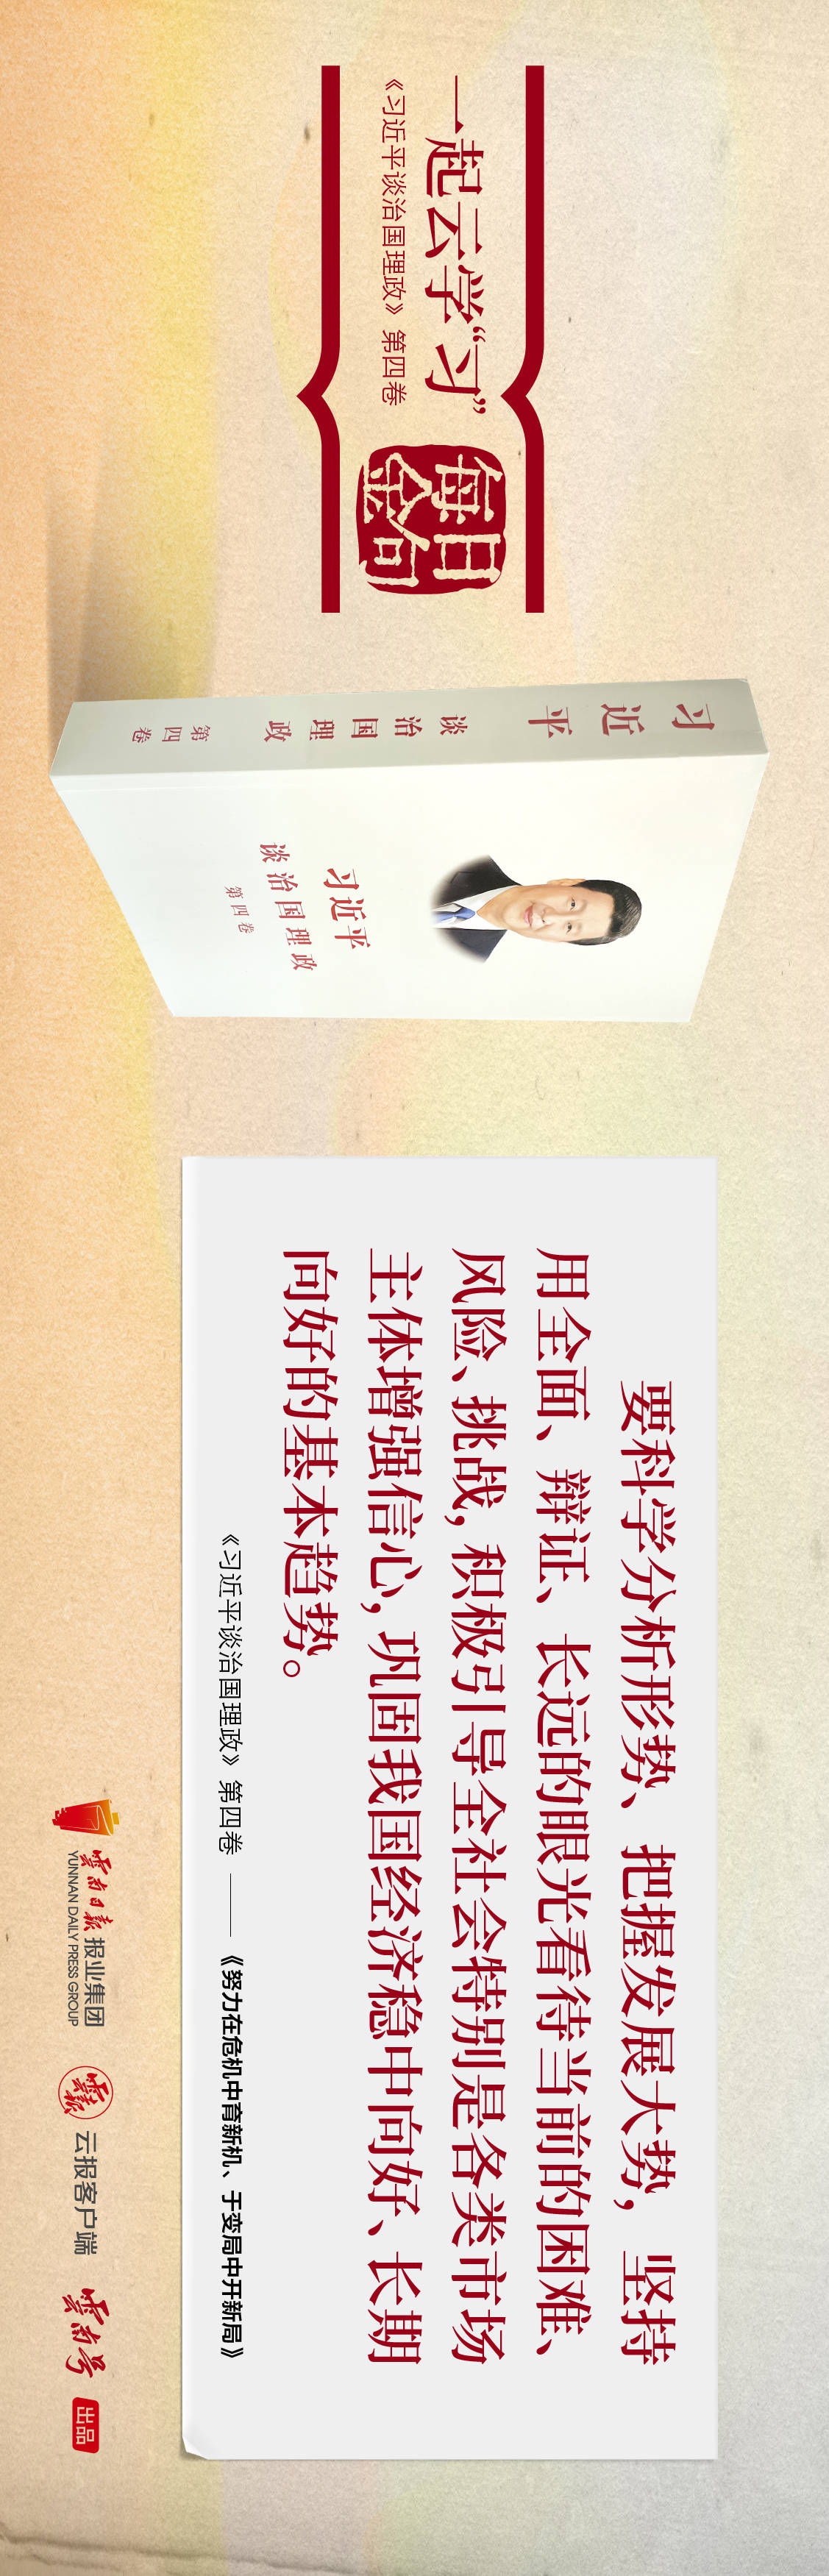 一起云学“习”
《习近平谈治国理政》第四卷
每日
金句
习近平 谈治国理政 第四卷
习近平
谈治国理政
第四卷
要科学分析形势、把握发展大势，坚持
用全面、辩证、长远的眼光看待当前的困难、
风险、挑战，积极引导全社会特别是各类市场
主体增强信心，巩固我国经济稳中向好、长期
向好的基本趋势。
《习近平谈治国理政》第四卷 ——《努力在危机中育新机、于变局中开新局》
雲南日報报业集团
YUNNAN DAILY PRESS GROUP
雲报 云报客户端
雲南号
出品